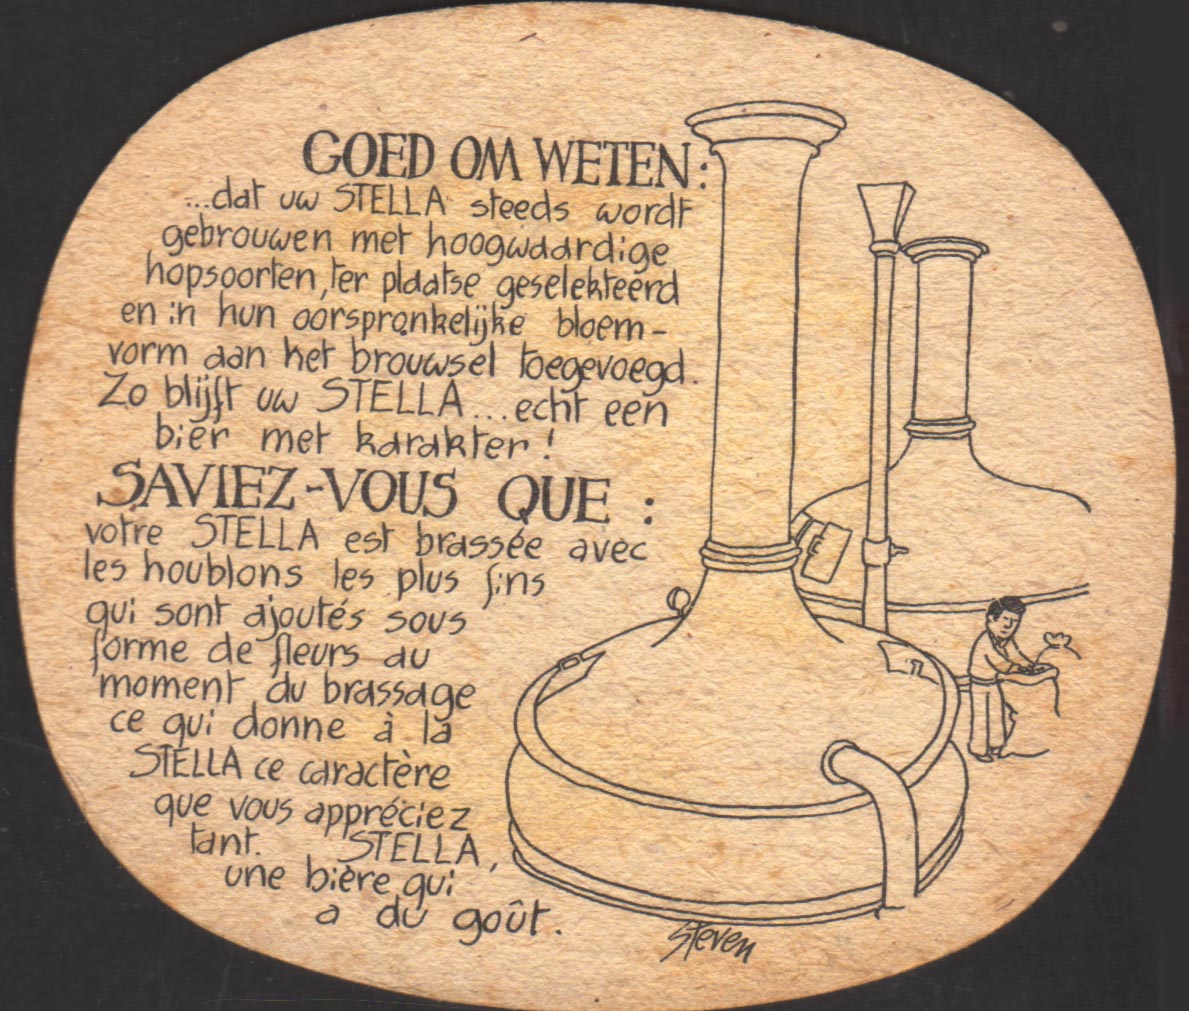 GOED OM WETEN:
...dat uw STELLA steeds wordt
gebrouwen met hoogwaardige
hopsoorten, ter plaatse geselekteerd
en in hun oorspronkelijke bloem-
vorm aan het brouwsel toegevoegd.
Zo blijft uw STELLA... echt een
bier met karakter!
SAVIEZ-VOUS QUE:
votre STELLA est brassée avec
les houblons les plus fins
qui sont ajoutés sous
forme de fleurs au
moment du brassage
ce qui donne à la
STELLA ce caractère
que vous appréciez
tant. STELLA,
une bière qui
a du goût.
Steven